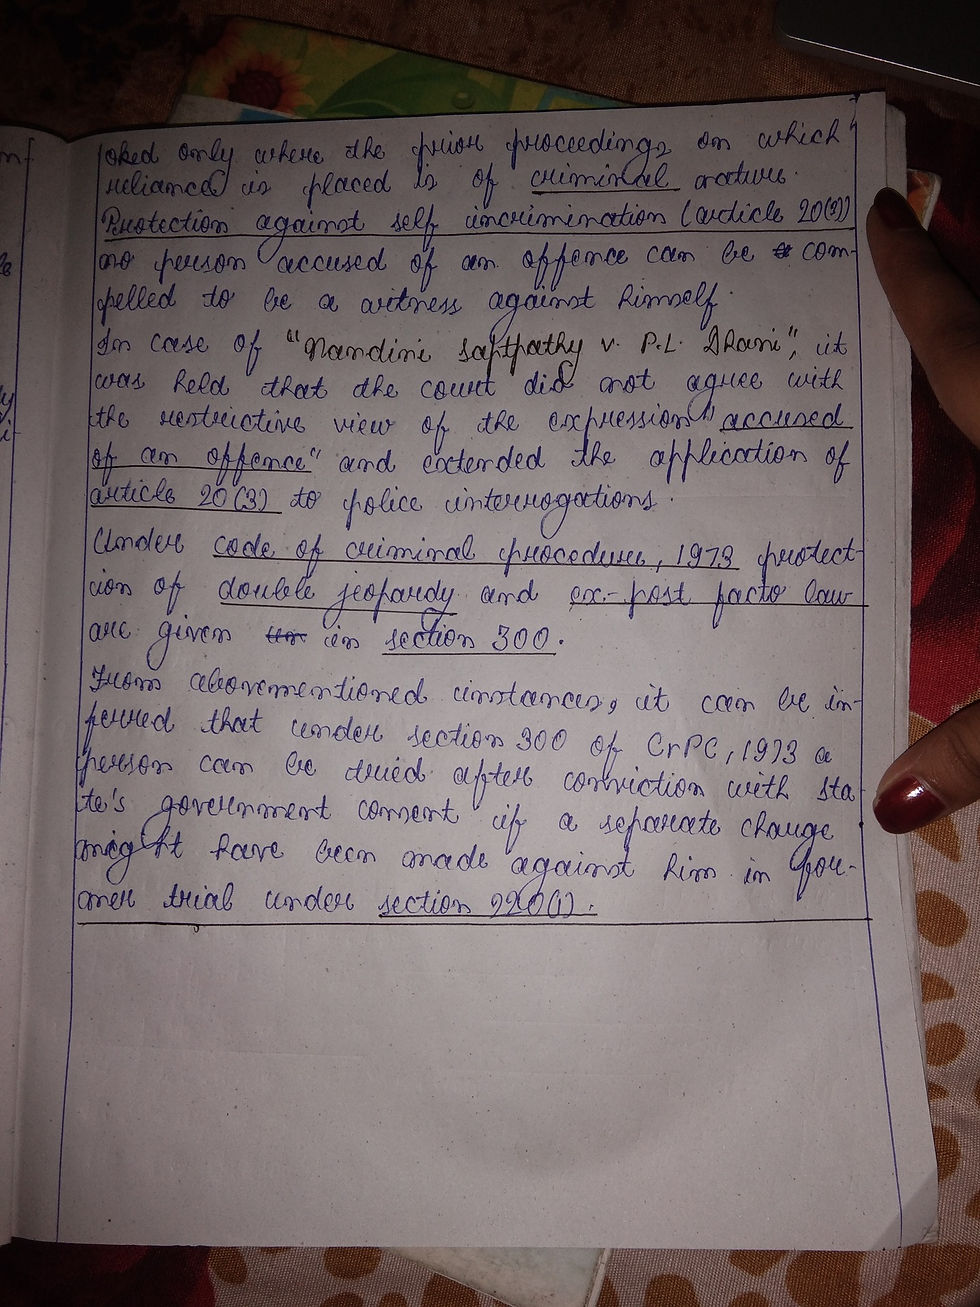 oked only where the prior proceedings on which
reliance is placed is of criminal nature.
Protection against self incrimination (article 20(3))
no person accused of an offence can be com-
pelled to be a witness against himself.
In case of "Nandini Saptpathy v. P.L. Dhani", it
was held that the court did not agree with
the restrictive view of the expression "accused
of an offence" and extended the application of
article 20(3) to police interrogations.
Under code of criminal procedure, 1973 protect-
ion of double jeopardy and ex-post facto law
are given in section 300.
From abovementioned instances, it can be in-
ferred that under section 300 of CrPC, 1973 a
person can be tried after conviction with sta-
te's government consent if a separate charge
might have been made against him in for-
mer trial under section 220(1).